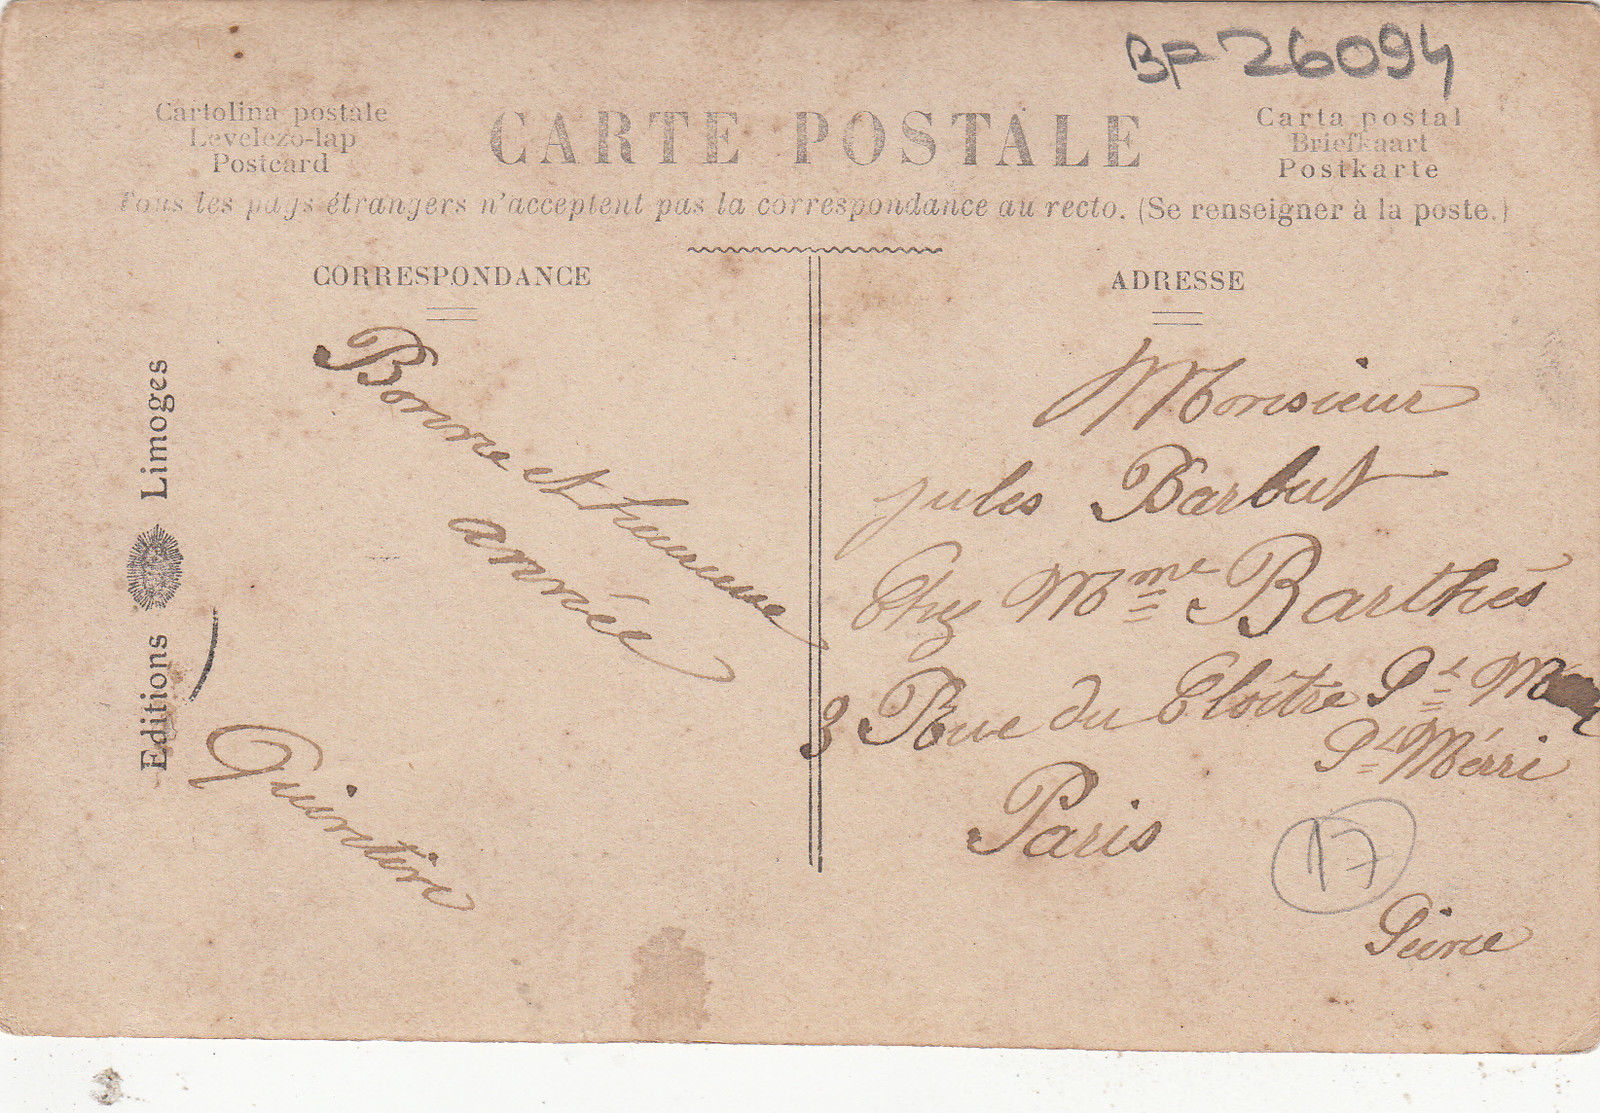 BF 26094
Cartolina postale
Levelezo-lap
Postcard
CARTE POSTALE
Carta postal
Briefkaart
Postkarte
Tous les pays étrangers n'acceptent pas la correspondance au recto. (Se renseigner à la poste.)
CORRESPONDANCE
Bonne et heureuse
année
Quintin
Editions Limoges
ADRESSE
Monsieur
Jules Barbut
Chez Mme Barthés
3 Rue du Cloître St
St Mérri
Paris
17
Seine